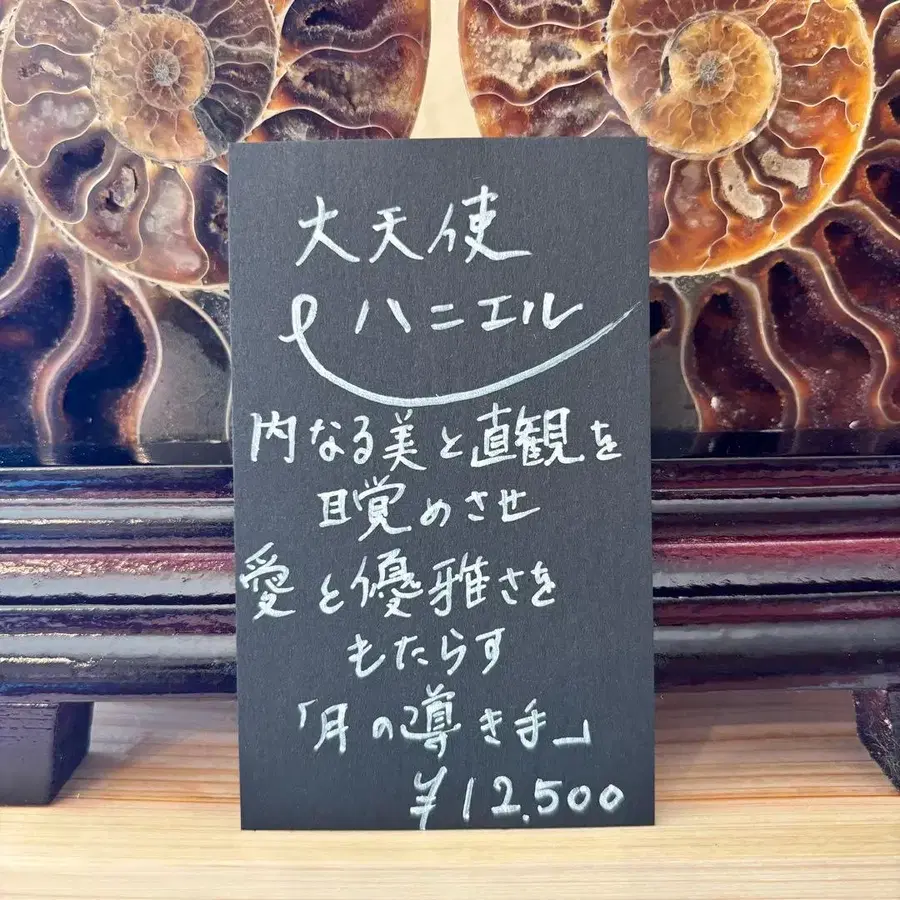 大天使
ハニエル
内なる美と直観を
目覚めさせ
愛と優雅さを
もたらす
「月の導き手」
¥12,500